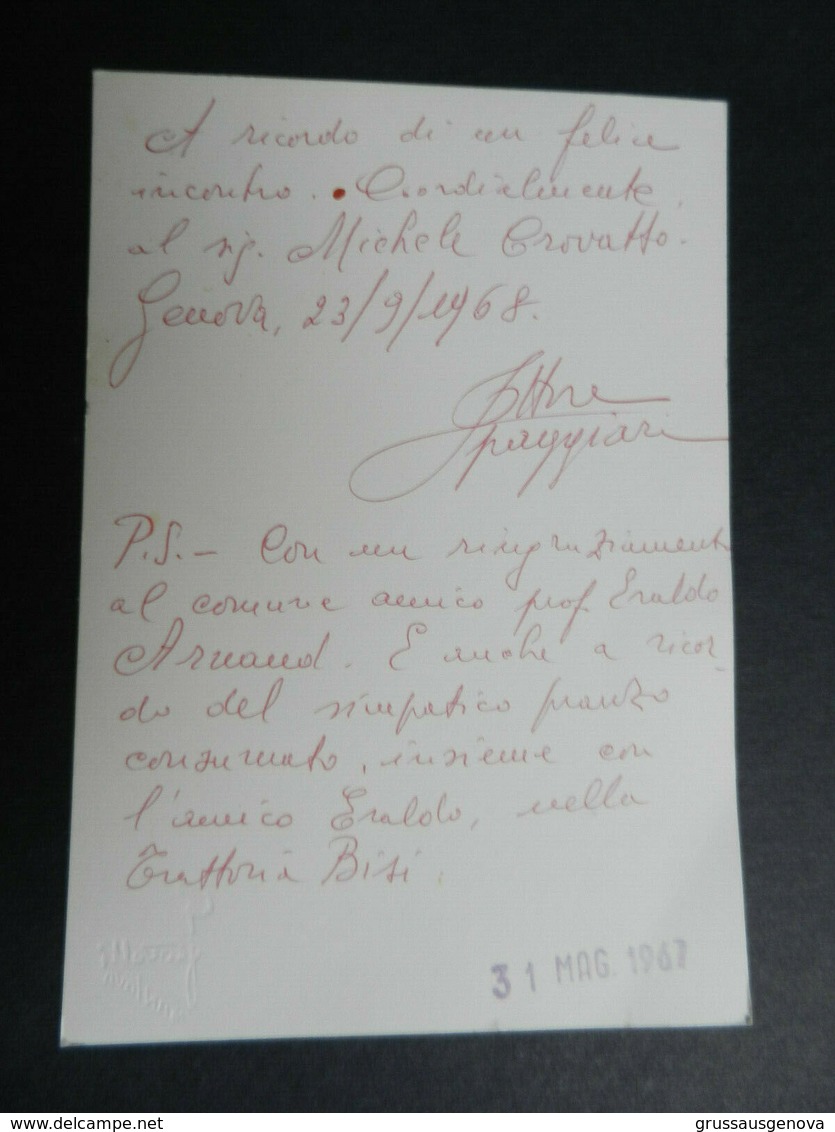 A ricordo di un felice
incontro. Cordialmente,
al sig. Michele Crovatto.
Genova, 23/9/1968.
Ettore
Spaggiari
P.S. – Con un ringraziamento
al comune amico prof. Eraldo
Arnaud. E anche a ricor-
do del simpatico pranzo
consumato, insieme con
l'amico Eraldo, nella
Trattoria Bisi.
31 MAG. 1967
www.delcampe.net
grussausgenova